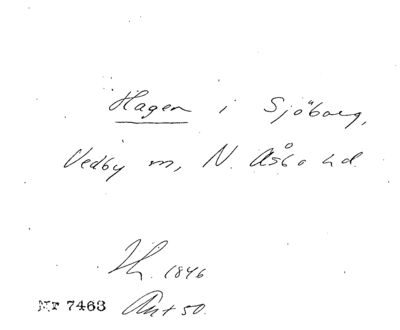 Hagen i Sjöborg,
Vedby m, N. Åsbo hd
1846
MT 7463 Ant 50.